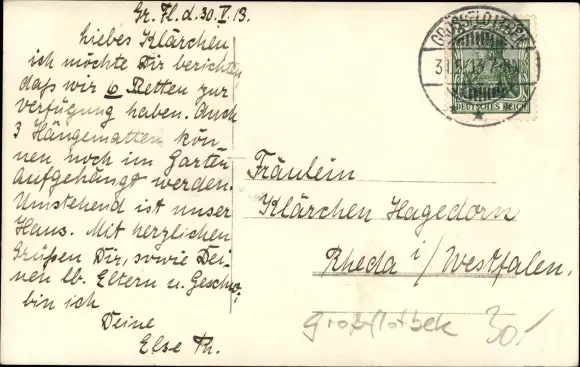 Gr. Fl. d. 30. V. 13.
Liebes Klärchen
ich möchte Dir berichten
daß wir 6 Betten zur
verfügung haben. Auch
3 Hängematten kön-
nen noch im Garten
aufgehängt werden.
Umstehend ist unser
Haus. Mit herzlichen
Grüßen Dir, sowie Dei-
nen lb. Eltern u. Geschw.
bin ich
Deine
Else Th.
DEUTSCHES REICH
Fräulein
Klärchen Hagedorn
Rheda i/Westfalen.
Großflotbek 30,-